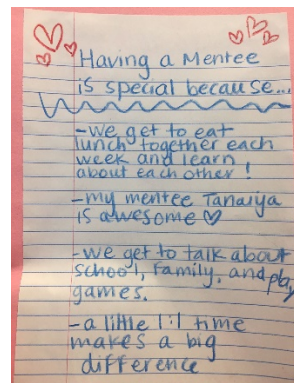 Having a Mentee
is special because...
-we get to eat
lunch together each
week and learn
about each other!
-my mentee Tanaiya
is awesome ♡
-we get to talk about
school, family, and play
games.
-a little l'il time
makes a big
difference